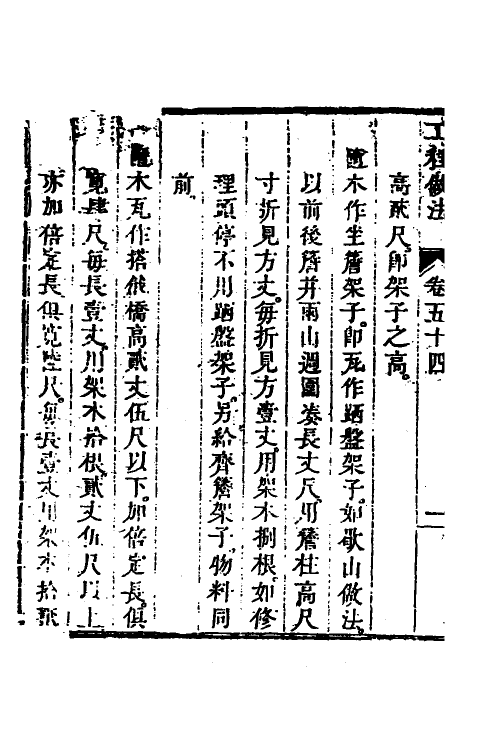 工程做法 卷五十四 二
高貳尺。即架子之高。
隨木作坐簷架子。即瓦作踊盤架子。如歇山做法。
以前後簷并兩山週圍湊長丈尺。用簷柱高尺
寸折見方丈。每折見方壹丈。用架木捌根。如修
理頭停不用踊盤架子。另給齊簷架子。物料同
前
隨木瓦作搭戧橋高貳丈伍尺以下。加倍定長。俱
寬肆尺。每長壹丈。用架木拾根。貳丈伍尺以上
亦加倍定長俱寬陸尺。每長壹丈用架木拾貳